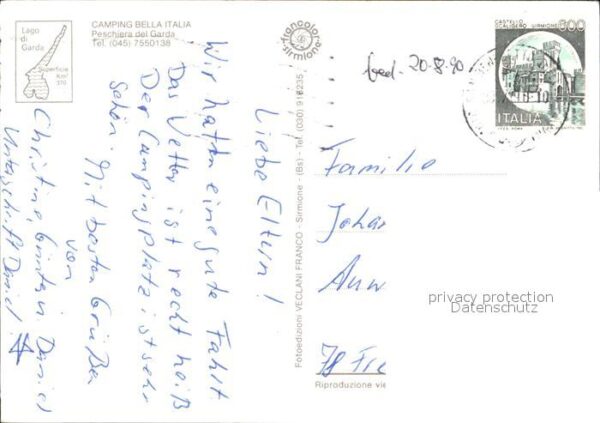 CAMPING BELLA ITALIA
Peschiera del Garda
Tel. (045) 7550138
Lago
di
Garda
Superficie
Km²
370
Liebe Eltern!
Wir hatten eine gute Fahrt
Das Wetter ist recht heiß
Der Campingplatz ist sehr
schön. Mit besten Grüßen
von
Christine, Günter, Daniel
Unterschrift Daniel
francolor
sirmione
Fotoedizioni VECLANI FRANCO - Sirmione - (Bs) - Tel. (030) 916235
20-8-90
CASTELLO
SCALIGERO SIRMIONE
500
ITALIA
16-10
Familie
Johan
Anw
78 Fre
privacy protection
Datenschutz
Riproduzione vie